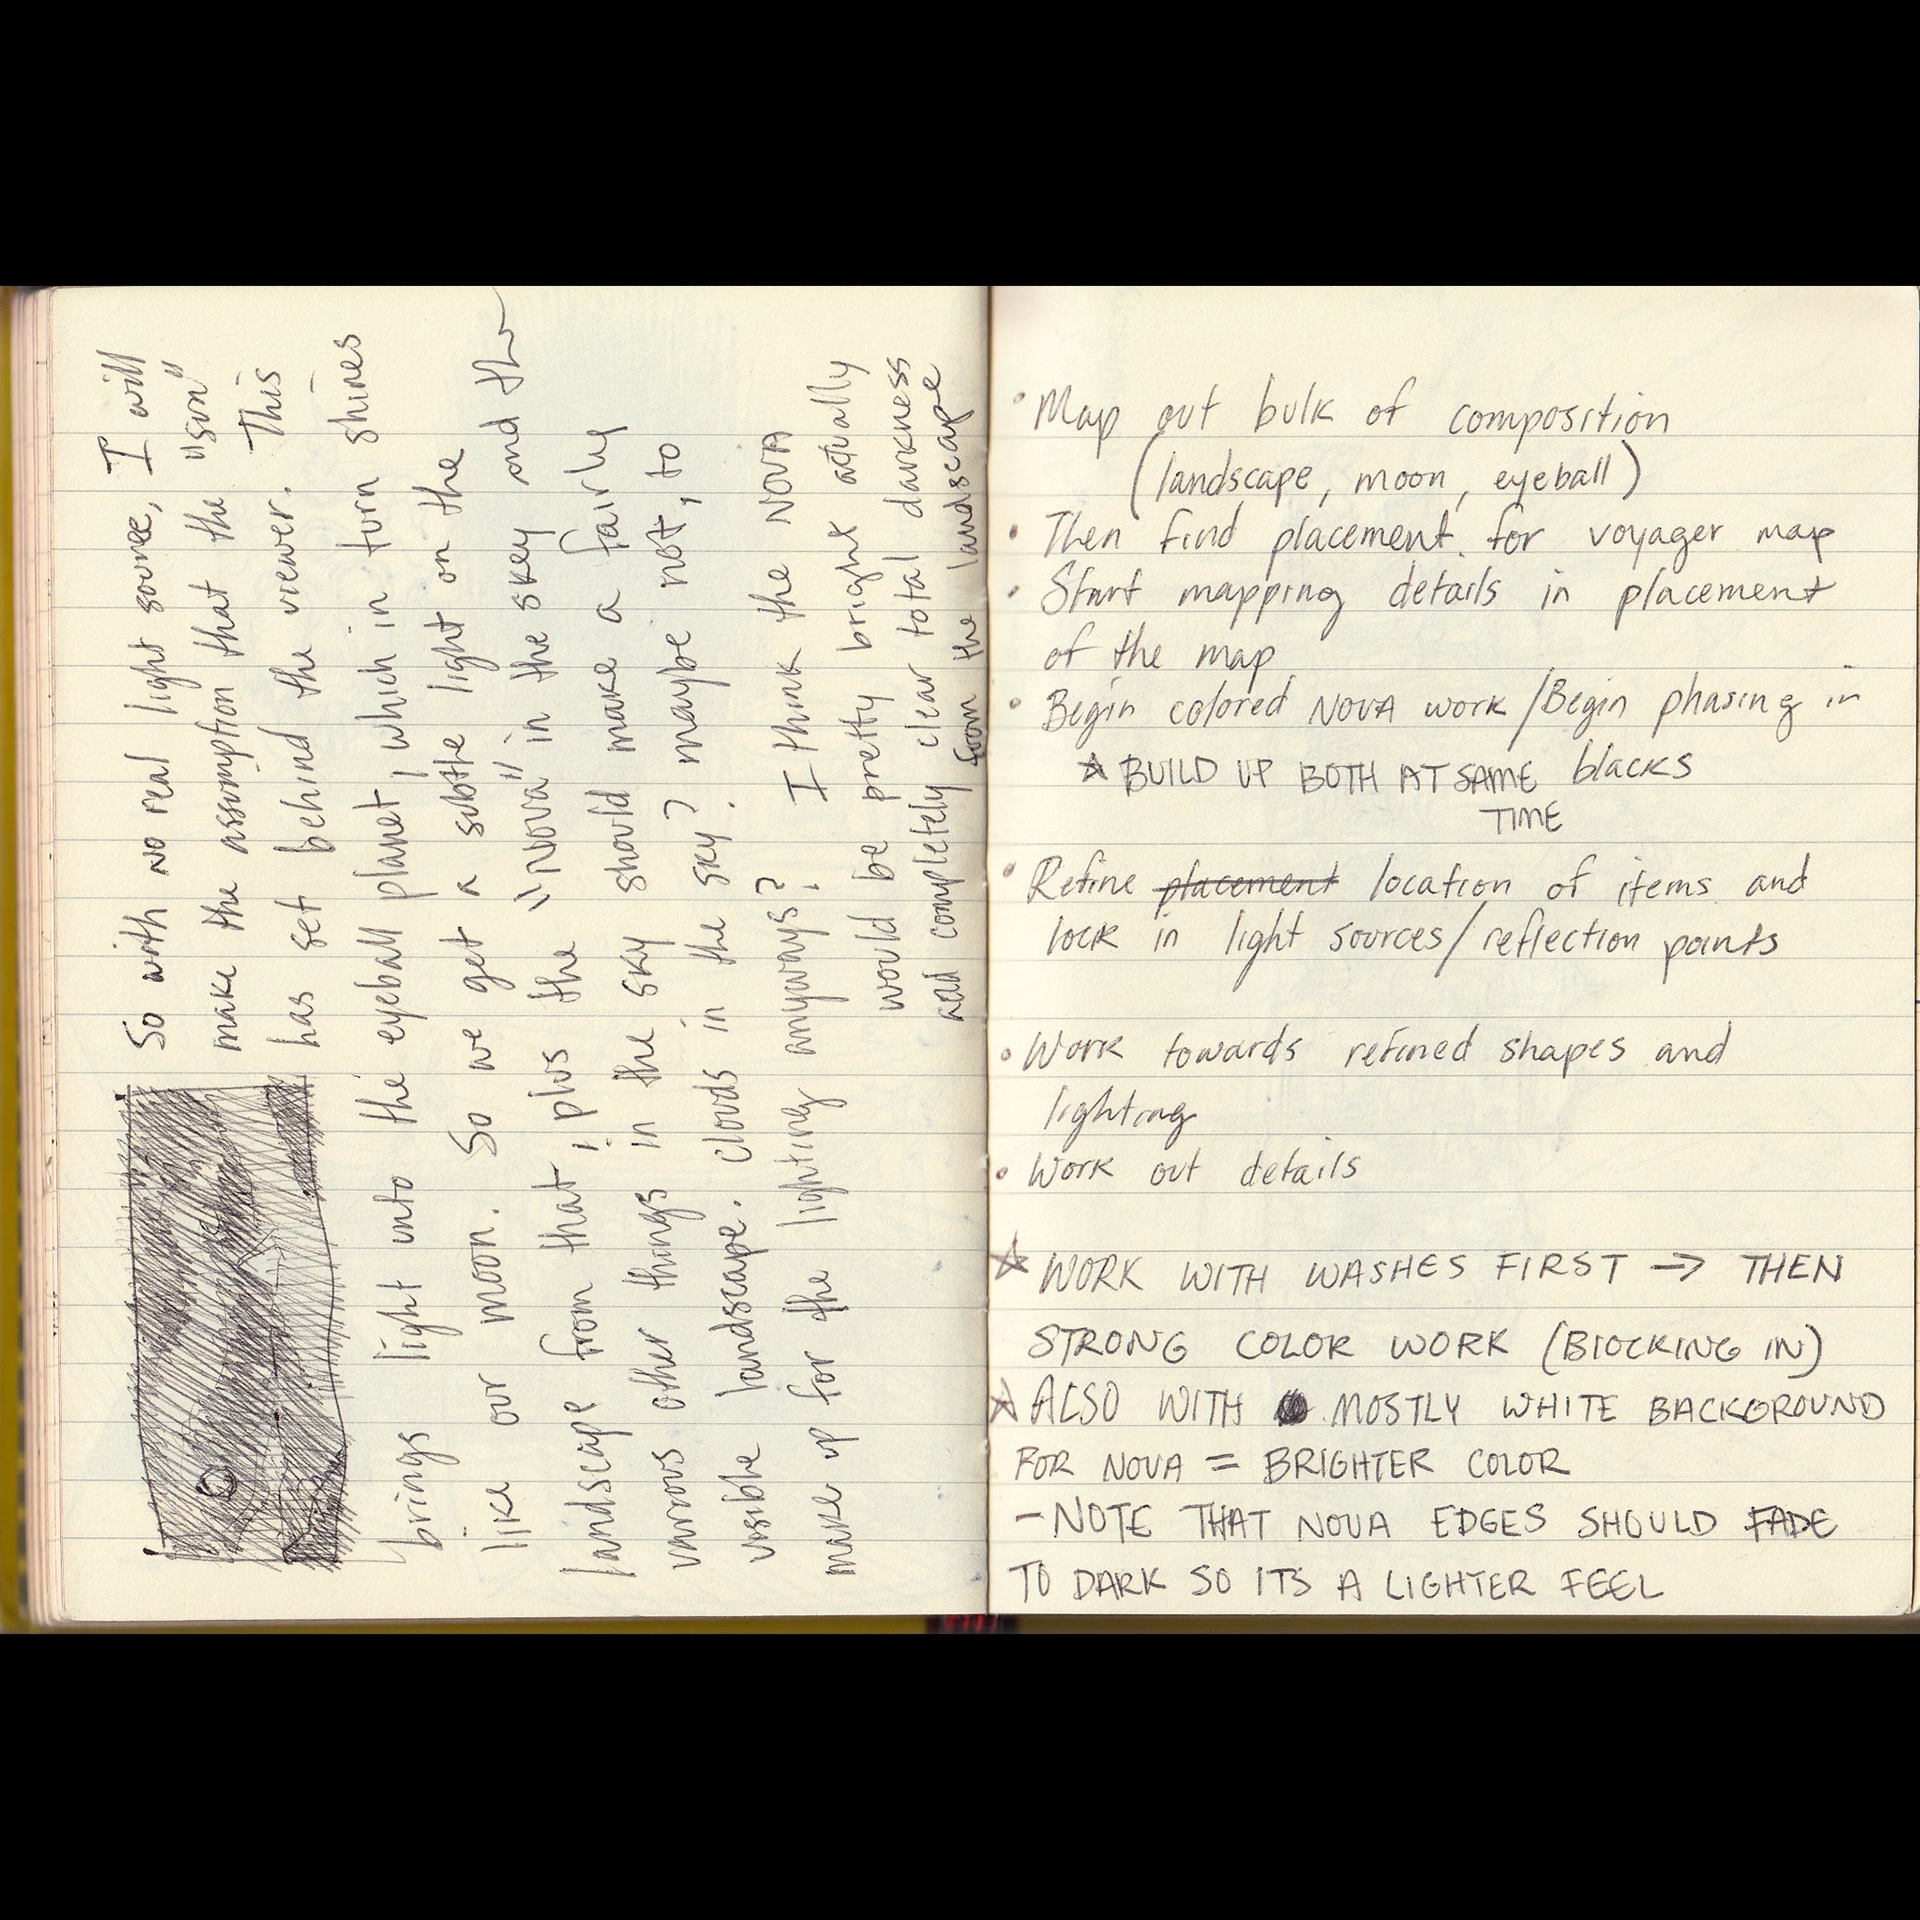 So with no real light source, I will
make the assumption that the "sun"
has set behind the viewer. This
brings light unto the eyeball planet, which in turn shines
like our moon. So we get a subtle light on the
landscape from that; plus the "nova" in the skey and the
various other things in the sky should make a fairly
visible landscape. clouds in the sky? maybe not, to
make up for the lighting anyways? I think the NOVA
would be pretty bright actually
and completely clear total darkness
from the landscape
• Map out bulk of composition
(landscape, moon, eyeball)
• Then find placement for voyager map
• Start mapping details in placement
of the map
• Begin colored NOVA work/Begin phasing in
☆ BUILD UP BOTH AT SAME blacks
TIME
• Refine placement location of items and
lock in light sources/reflection points
• Work towards refined shapes and
lighting
• Work out details
☆ WORK WITH WASHES FIRST → THEN
STRONG COLOR WORK (BLOCKING IN)
☆ ALSO WITH MOSTLY WHITE BACKGROUND
FOR NOVA = BRIGHTER COLOR
- NOTE THAT NOVA EDGES SHOULD FADE
TO DARK SO ITS A LIGHTER FEEL